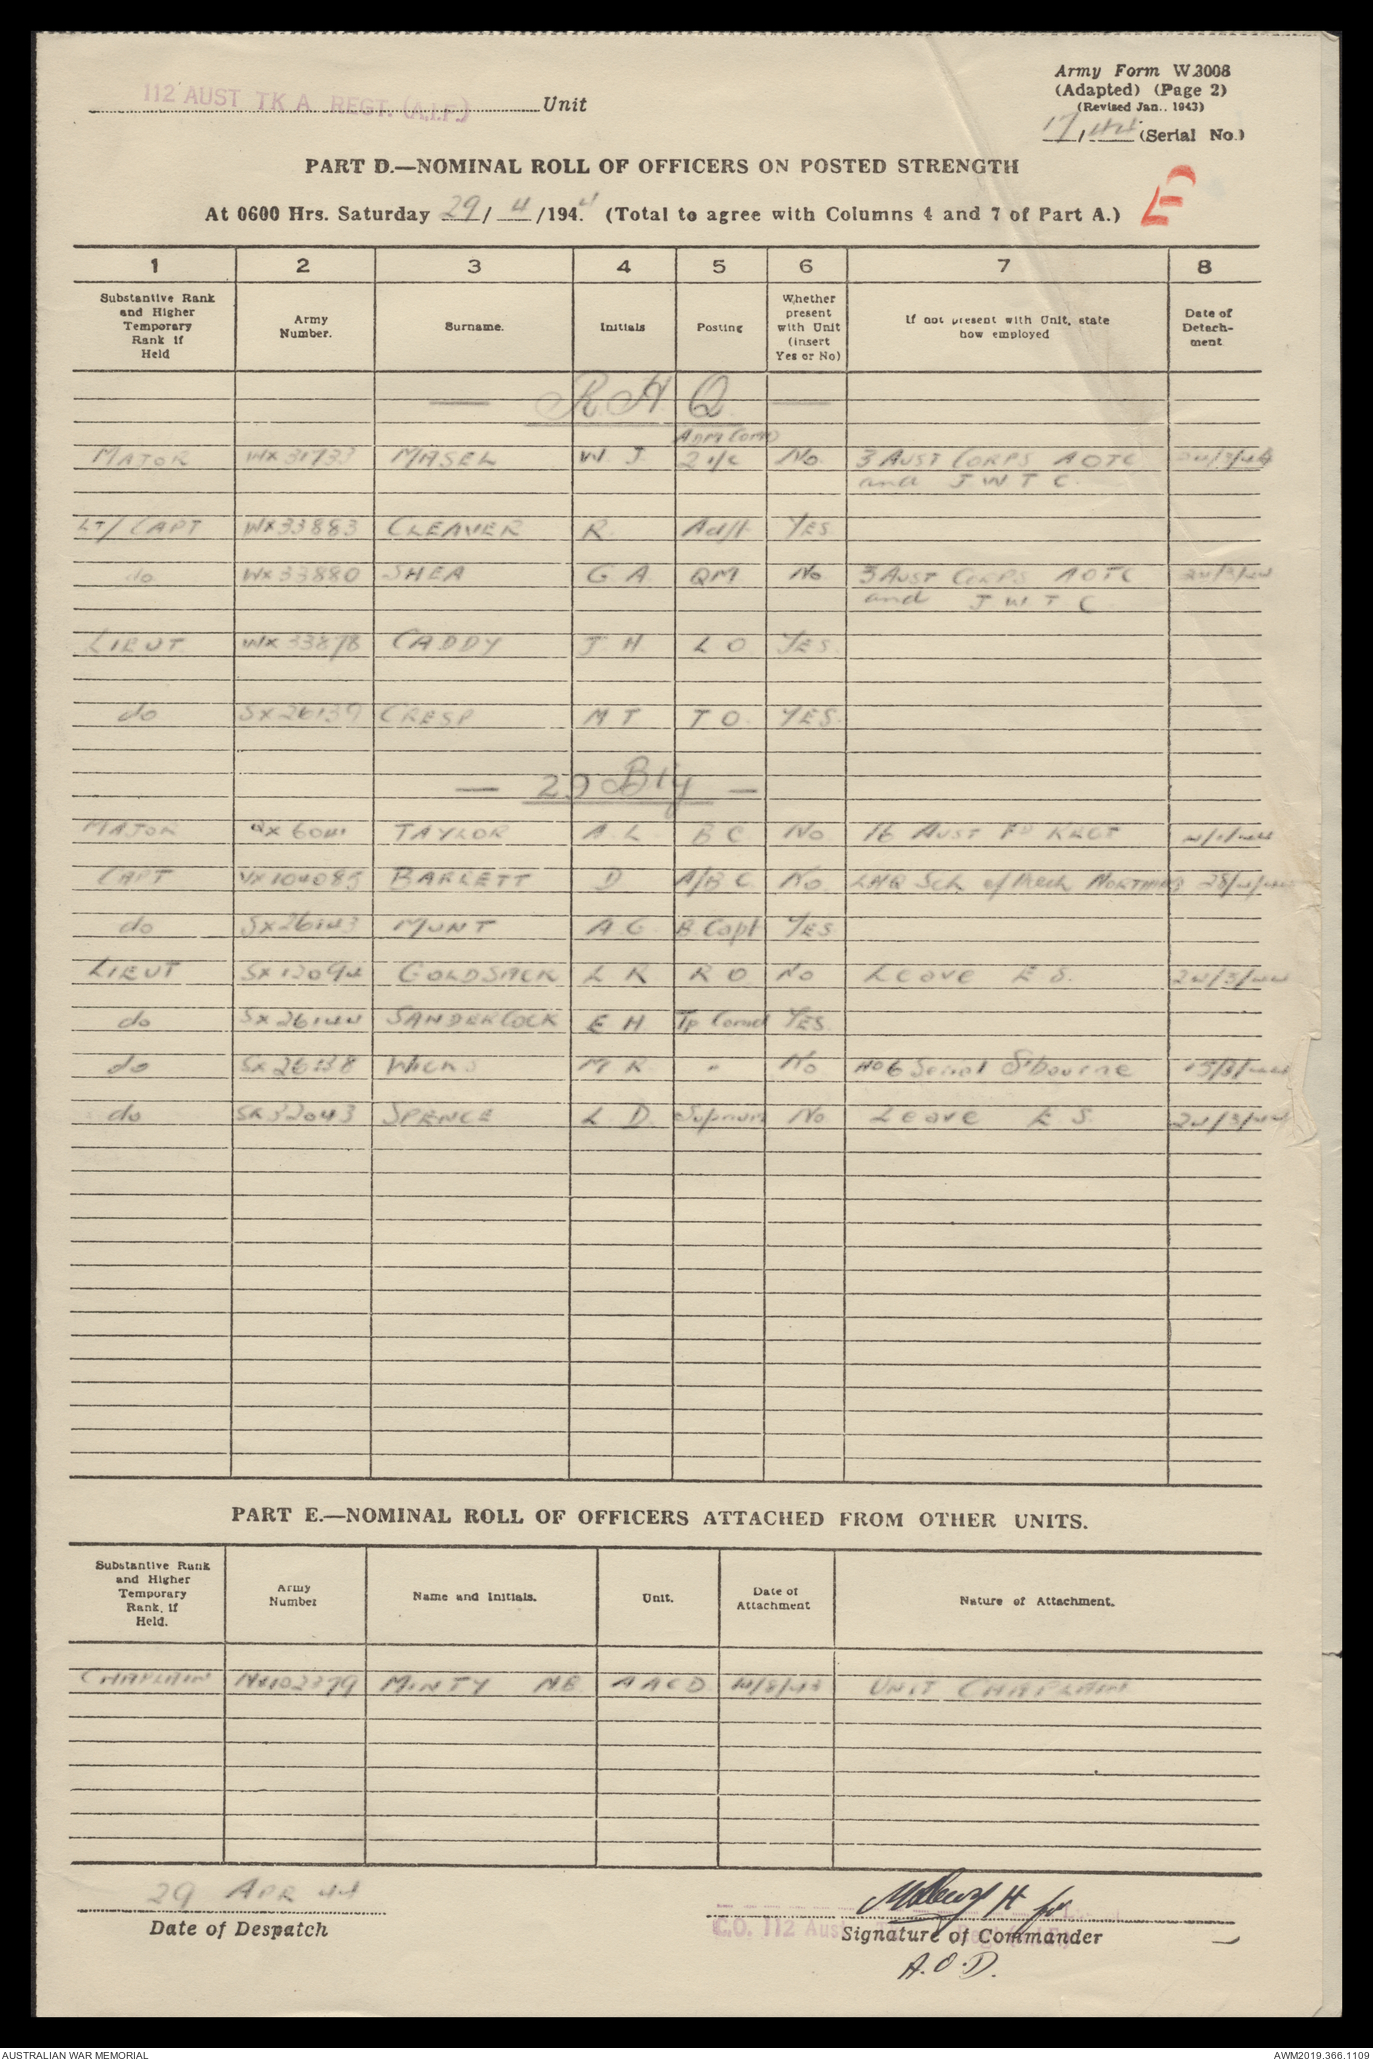 112 AUST TK A REGT. (A.I.F.) Unit
Army Form W.3008
(Adapted) (Page 2)
(Revised Jan., 1943)
17/44 (Serial No.)
PART D.—NOMINAL ROLL OF OFFICERS ON POSTED STRENGTH
At 0600 Hrs. Saturday 29/4/1944 (Total to agree with Columns 4 and 7 of Part A.)
E
1 2 3 4 5 6 7 8
Substantive Rank and Higher Temporary Rank if Held
Army Number.
Surname.
Initials
Posting
Whether present with Unit (insert Yes or No)
If not present with Unit, state how employed
Date of Detachment
— R H Q —
Adm Comd
MAJOR WX31733 MASEL W. J 2 i/c No 3 AUST CORPS AOTC 24/3/44
and J W T C.
LT/CAPT WX33883 CLEAVER R. Adjt YES
do WX33880 SHEA G A QM No 3 AUST CORPS AOTC 24/3/44
and J W T C
LIEUT WX33878 CADDY J. H L O YES
do SX26139 CRESP M T T O. YES.
— 29 Bty —
MAJOR TAYLOR A. L B C No 16 AUST FD REGT
CAPT VX104085 BARRETT D A/B C. No LHQ Sch of Mech 28/4/44
do SX26143 MUNT A G. B Capt YES
LIEUT SX12094 GOLDSACK L R R O No Leave E S. 24/3/44
do SX26144 SANDERCOCK E H Tp Comd YES
do SX26138 WICKS M R. " No
do SX32043 SPENCE L D. No Leave E S. 24/3/44
PART E.—NOMINAL ROLL OF OFFICERS ATTACHED FROM OTHER UNITS.
Substantive Rank and Higher Temporary Rank, if Held.
Army Number
Name and Initials.
Unit.
Date of Attachment
Nature of Attachment.
CHAPLAIN NX102379 MINTY N.B. AACD /8/43 UNIT CHAPLAIN
29 APR 44
Date of Despatch
C.O. 112 Aust
Lt for
Signature of Commander
A.O.D.
AUSTRALIAN WAR MEMORIAL
AWM2019.366.1109